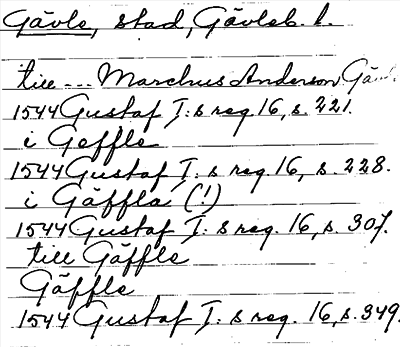 Gävle, stad, Gävleb. l.
till --- Marchus Anderson Gä
1544 Gustaf I:s reg. 16, s. 221.
i Geffle
1544 Gustaf I:s reg. 16, s. 228.
i Gäffla (!)
1544 Gustaf I:s reg. 16, s. 307.
till Gäffle
Gäffle
1544 Gustaf I:s reg. 16, s. 349.